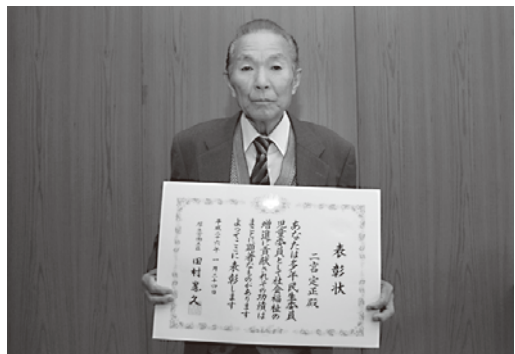 表彰状
二宮定正殿
あなたは多年民生委員
児童委員として社会福祉の
増進に貢献されその功績は
まことに顕著なものがあります
よってここに表彰します
平成二十六年一月二十四日
厚生労働大臣 田村憲久